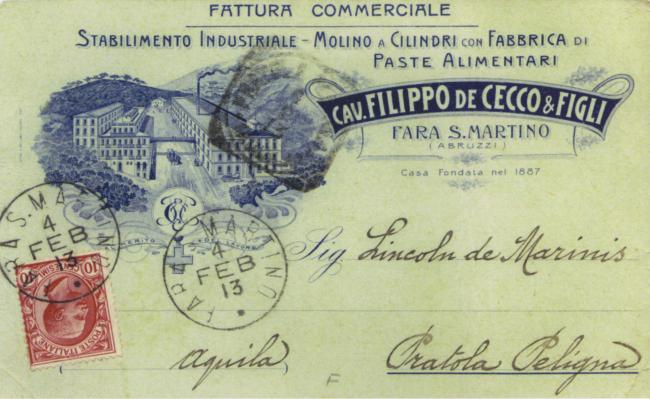 FATTURA COMMERCIALE
STABILIMENTO INDUSTRIALE - MOLINO A CILINDRI CON FABBRICA DI
PASTE ALIMENTARI
CAV. FILIPPO DE CECCO & FIGLI
FARA S. MARTINO
(ABRUZZI)
Casa Fondata nel 1887
AL MERITO DEL LAVORO
FARA S. MARTINO
4
FEB
13
FARA S. MARTINO
4
FEB
13
10
10
POSTE ITALIANE
Sig Lincoln de Marinis
Aquila
Pratola Peligna
F